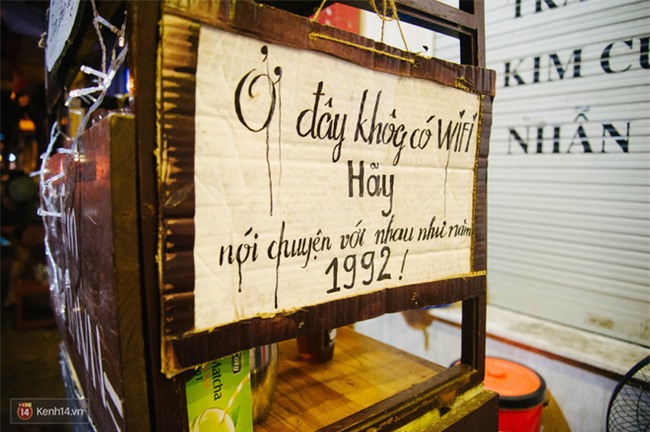 Ở đây khôg có WiFi
Hãy
nói chuyện với nhau như năm
1992!
KIM CƯ
NHẪN
Matcha
Kenh14.vn